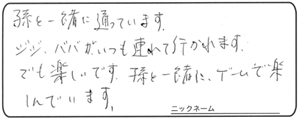 孫と一緒に通っています。
ジジ、ババがいつも連れて行かれます。
でも楽しいです。孫と一緒に、ゲームで楽
しんでいます。
ニックネーム